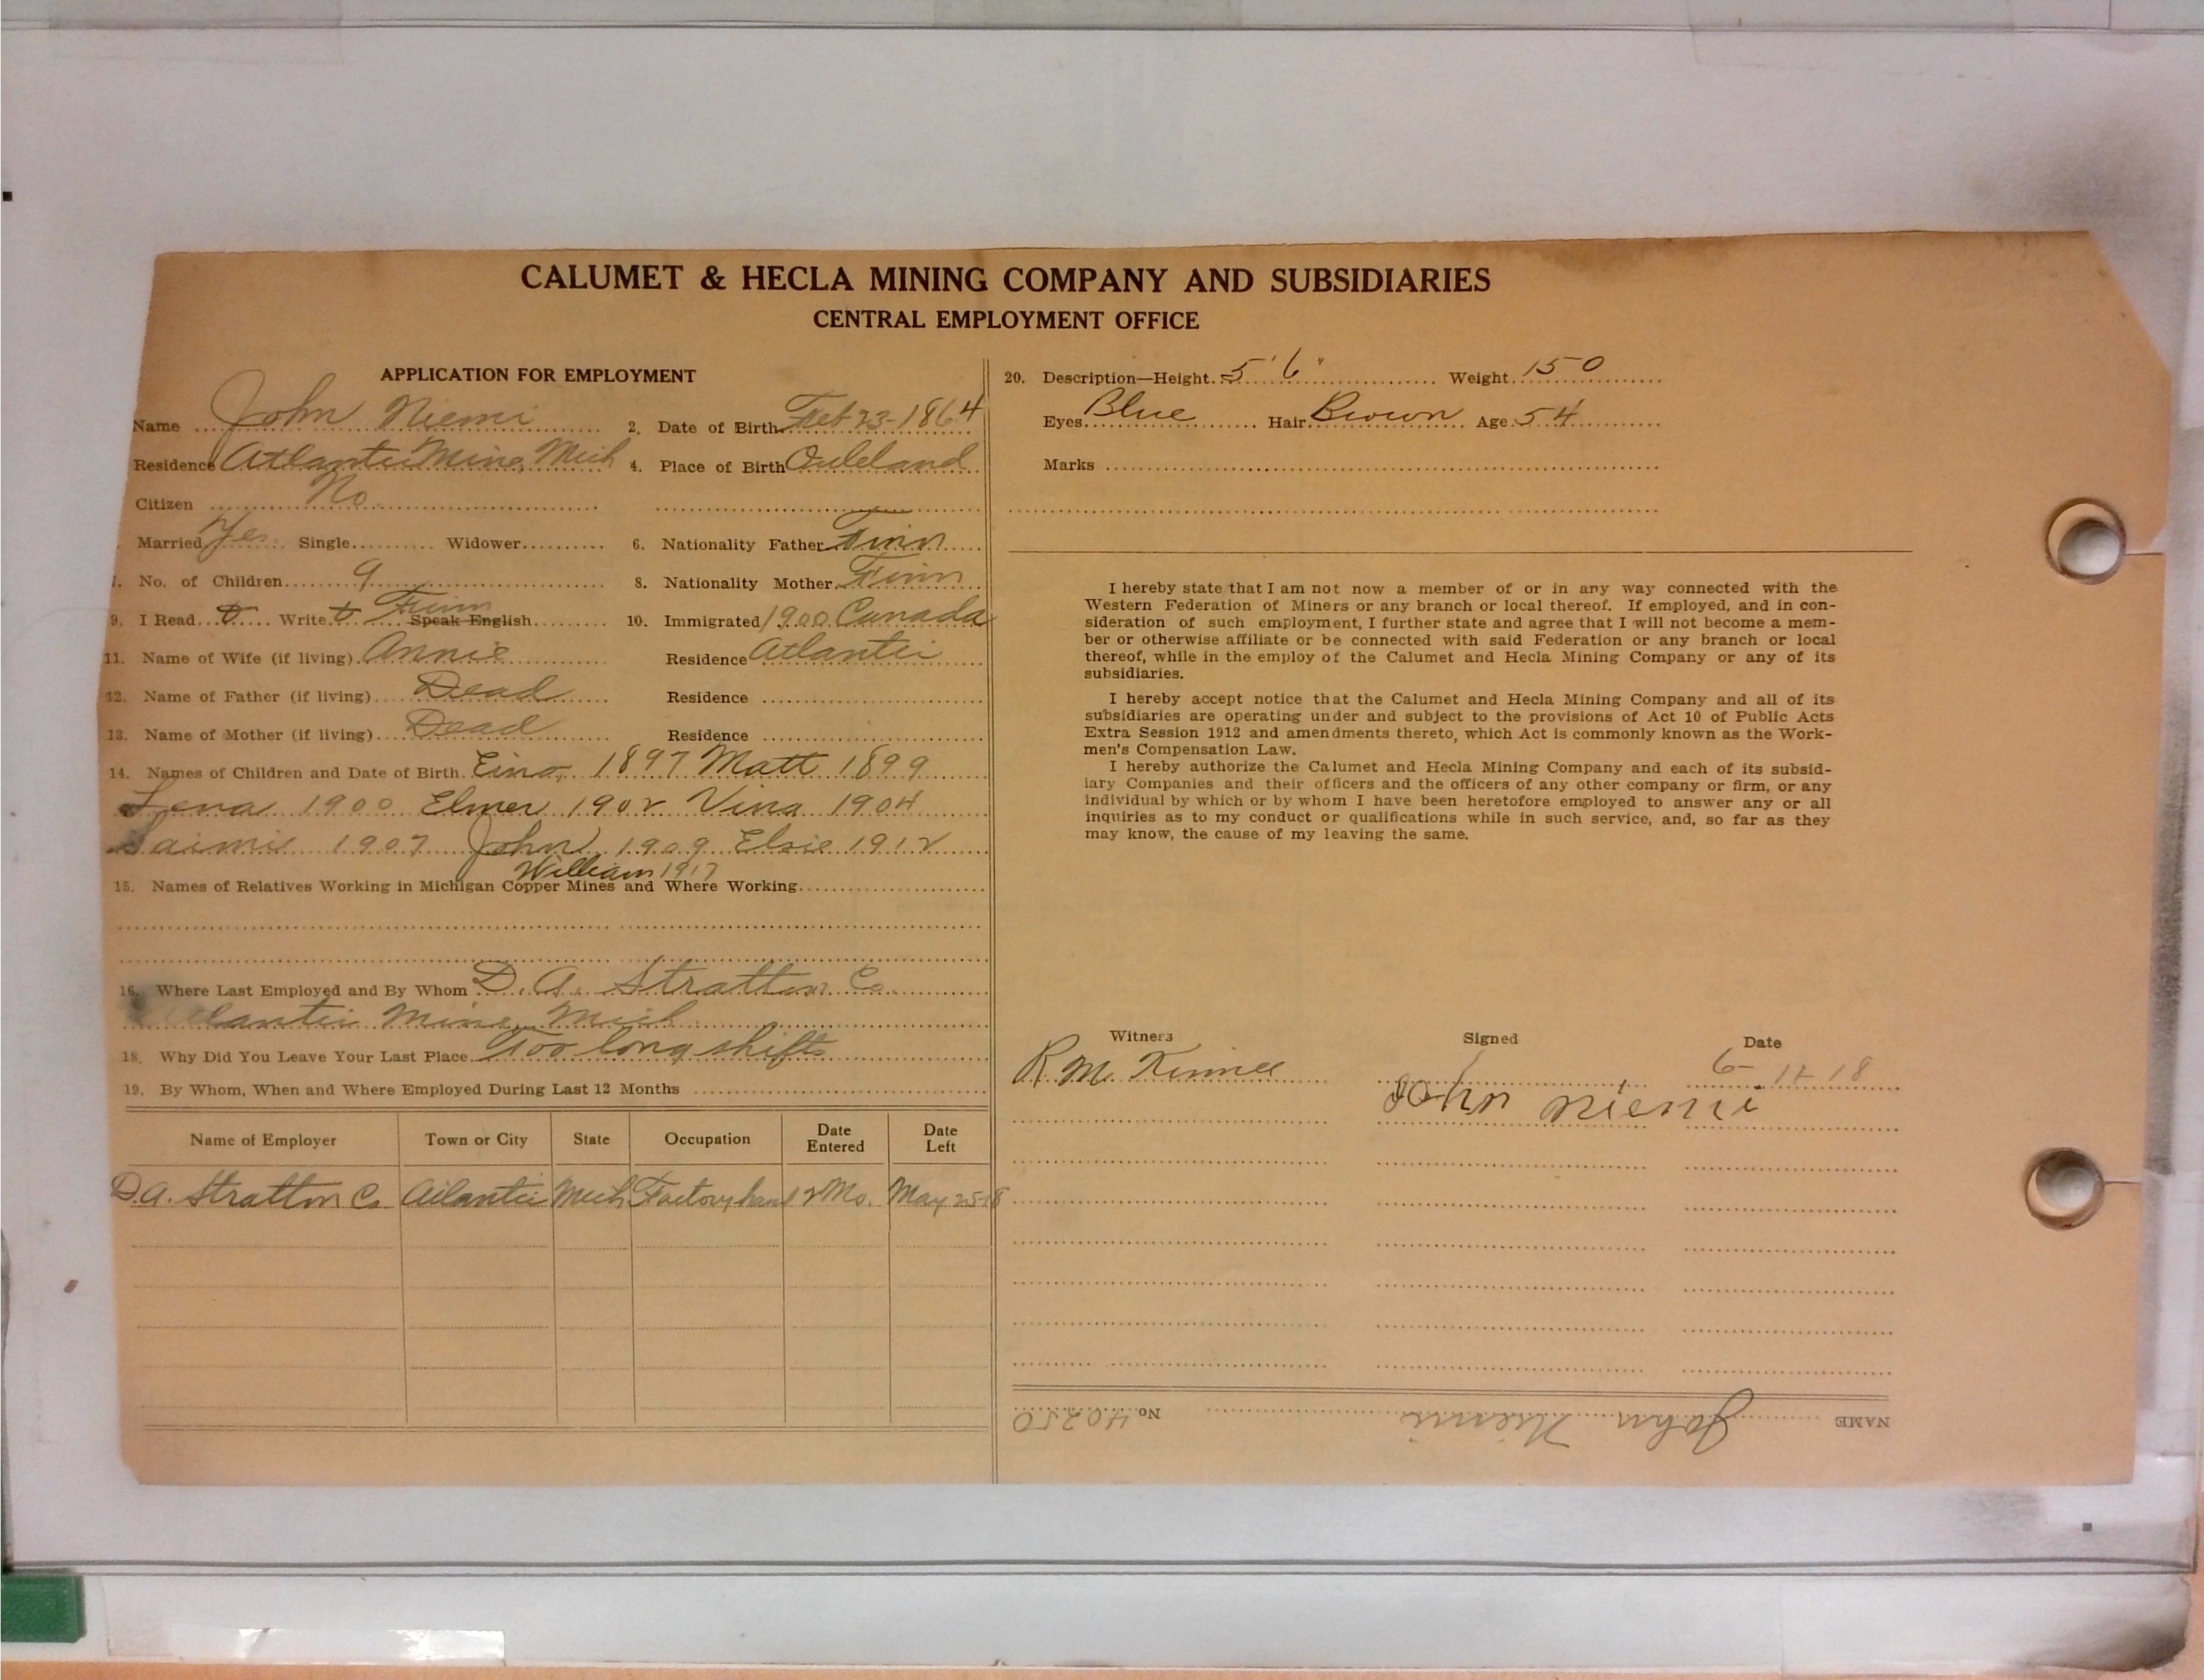 CALUMET & HECLA MINING COMPANY AND SUBSIDIARIES
CENTRAL EMPLOYMENT OFFICE
APPLICATION FOR EMPLOYMENT
Name John Niemi 2. Date of Birth Feb 23-1864
Residence Atlantic Mine, Mich 4. Place of Birth
Citizen No
Married Yes Single Widower 6. Nationality Father Finn
7. No. of Children 9 8. Nationality Mother Finn
9. I Read Write Finn Speak English 10. Immigrated 1900 Canada
11. Name of Wife (if living) Annie Residence Atlantic
12. Name of Father (if living) Dead Residence
13. Name of Mother (if living) Dead Residence
14. Names of Children and Date of Birth Eino, 1897 Matt 1899
Lena 1900 Elmer 1902 Vina 1904
Saimie 1907 John 1909 Elsie 1912
William 1917
15. Names of Relatives Working in Michigan Copper Mines and Where Working
16. Where Last Employed and By Whom D. A. Stratton Co
lantic Mine, Mich
18. Why Did You Leave Your Last Place Too long shifts
19. By Whom, When and Where Employed During Last 12 Months
Name of Employer Town or City State Occupation Date Entered Date Left
D. A. Stratton Co Atlantic Mich Factory hand 12 Mo. May 25-18
20. Description—Height 5' 6" Weight 150
Eyes Blue Hair Brown Age 54
Marks
I hereby state that I am not now a member of or in any way connected with the
Western Federation of Miners or any branch or local thereof. If employed, and in con-
sideration of such employment, I further state and agree that I will not become a mem-
ber or otherwise affiliate or be connected with said Federation or any branch or local
thereof, while in the employ of the Calumet and Hecla Mining Company or any of its
subsidiaries.
I hereby accept notice that the Calumet and Hecla Mining Company and all of its
subsidiaries are operating under and subject to the provisions of Act 10 of Public Acts
Extra Session 1912 and amendments thereto, which Act is commonly known as the Work-
men's Compensation Law.
I hereby authorize the Calumet and Hecla Mining Company and each of its subsid-
iary Companies and their officers and the officers of any other company or firm, or any
individual by which or by whom I have been heretofore employed to answer any or all
inquiries as to my conduct or qualifications while in such service, and, so far as they
may know, the cause of my leaving the same.
Witness Signed Date
R. M. 6- 18
John Niemi
NAME John Niemi No 40250